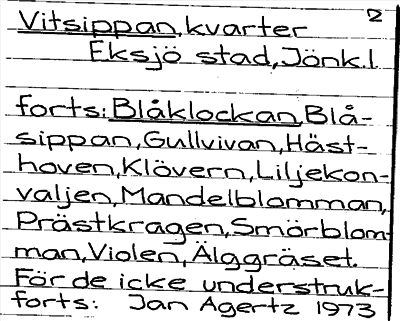 2
Vitsippan, kvarter
Eksjö stad, Jönk.l
forts: Blåklockan, Blå-
sippan, Gullvivan, Häst-
hoven, Klövern, Liljekon-
valjen, Mandelblomman,
Prästkragen, Smörblom-
man, Violen, Älggräset.
För de icke understruk-
forts: Jan Agertz 1973